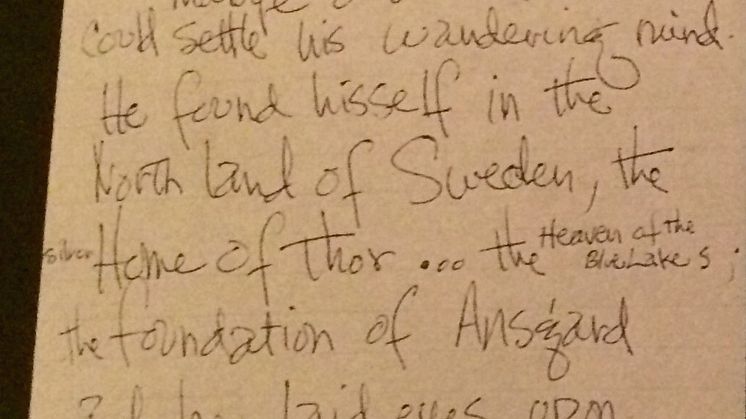 could settle his wandering mind.
He found hisself in the
North land of Sweden, the
silver Home of Thor ... the Heaven of the Blue Lakes ;
the foundation of Ansgard
laid eyes upon